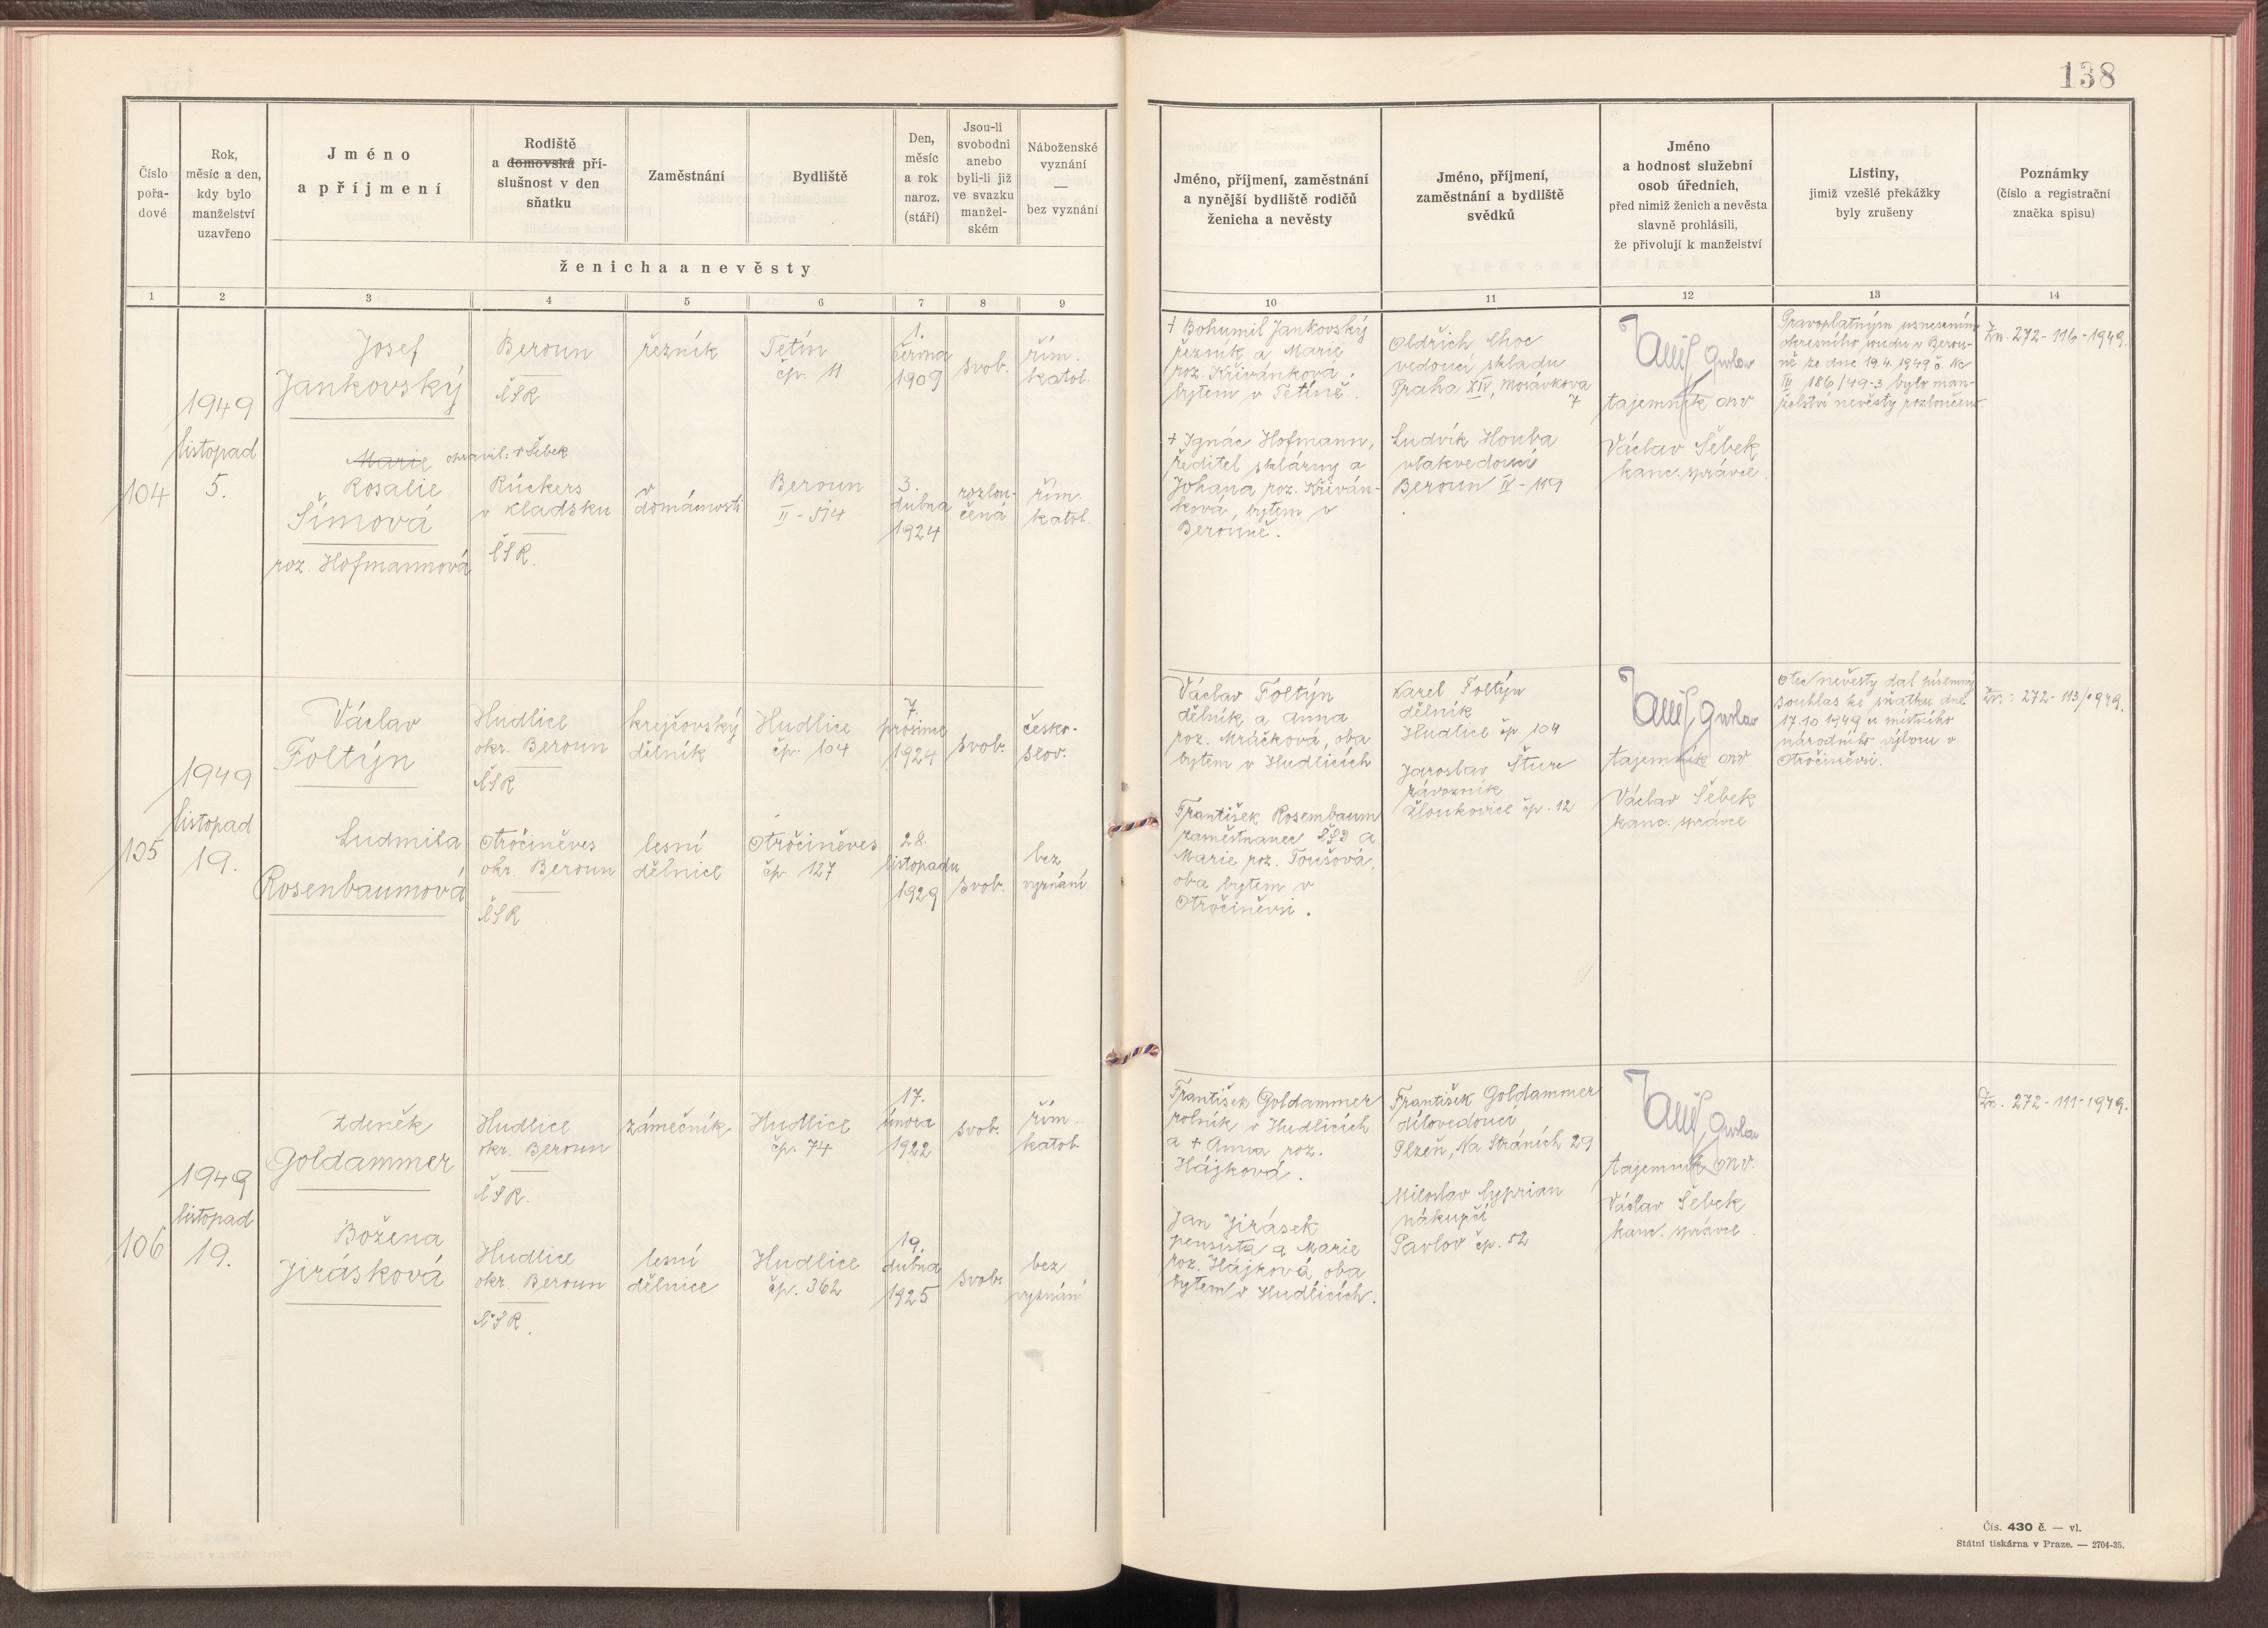 138
Číslo
pořa-
dové
Rok,
měsíc a den,
kdy bylo
manželství
uzavřeno
Jméno
a příjmení
Rodiště
a domovská pří-
slušnost v den
sňatku
Zaměstnání
Bydliště
Den,
měsíc
a rok
naroz.
(stáří)
Jsou-li
svobodni
anebo
byli-li již
ve svazku
manžel-
ském
Náboženské
vyznání
—
bez vyznání
ženicha a nevěsty
Jméno, příjmení, zaměstnání
a nynější bydliště rodičů
ženicha a nevěsty
Jméno, příjmení,
zaměstnání a bydliště
svědků
Jméno
a hodnost služební
osob úředních,
před nimiž ženich a nevěsta
slavně prohlásili,
že přivolují k manželství
Listiny,
jimiž vzešlé překážky
byly zrušeny
Poznámky
(číslo a registrační
značka spisu)
1 2 3 4 5 6 7 8 9 10 11 12 13 14
104
1949
listopad
5.
Josef
Jankovský
Beroun
ČSR
řezník
Tetín
čp. 11
1.
června
1909
svob.
řím.
katol.
Marie opravil: Šebek
Rosalie
Šímová
roz. Hofmannová
Rückers
v Kladsku
ČSR.
v
domácnosti
Beroun
II - 514
3.
dubna
1924
rozlou-
čená
řím.
katol.
† Bohumil Jankovský
řezník a Marie
roz. Křivánková,
bytem v Tetíně.
+ Ignác Hofmann,
ředitel sklárny a
Johana roz. Křiván-
ková, bytem v
Berouně.
Oldřich Choc
vedoucí skladu
Praha XIV, Morávkova
7
Ludvík Houba
vlakvedoucí
Beroun IV - 119
tajemník onv
Václav Šebek
kanc. správce.
Pravoplatným usnesením
okresního soudu v Berou-
ně ze dne 19.4.1949 č. Nc
III 186/49-3 bylo man-
želství nevěsty rozloučeno.
Zn. 272-116-1949.
105
1949
listopad
19.
Václav
Foltýn
Hudlice
okr. Beroun
ČSR
krejčovský
dělník
Hudlice
čp. 104
7.
prosince
1924
svob.
česko-
slov.
Ludmila
Rosenbaumová
Otročiněves
okr. Beroun
ČSR
lesní
dělnice
Otročiněves
čp 127
28.
listopadu
1929
svob.
bez
vyznání
Václav Foltýn
dělník a Anna
roz. Mráčková, oba
bytem v Hudlicích
František Rosembaum
zaměstnanec ČSD a
Marie roz. Toušová,
oba bytem v
Otročiněvsi.
Karel Foltýn
dělník
Hudlice čp. 104
Jaroslav Šturc
závozník
Žloukovice čp. 12
tajemník onv
Václav Šebek
kanc. správce
Otec nevěsty dal písemný
souhlas ke sňatku dne
17.10 1949 u místního
národního výboru v
Otročiněvsi.
Zn.: 272-113/1949.
106
1949
listopad
19.
Zdeněk
Goldammer
Hudlice
okr. Beroun
ČSR.
zámečník
Hudlice
čp. 74
17.
února
1922
svob.
řím.
katol.
Božena
Jirásková
Hudlice
okr. Beroun
ČSR.
lesní
dělnice
Hudlice
čp. 362
19.
dubna
1925
svob.
bez
vyznání
František Goldammer
rolník v Hudlicích
a + Anna roz.
Hájková.
Jan Jirásek
pensista a Marie
roz. Hájková oba
bytem v Hudlicích.
František Goldammer
dílovedoucí
Plzeň, Na Stráních 29
Miloslav Cyprian
nákupčí
Pavlov čp. 52
tajemník onv.
Václav Šebek
kanc. správce.
Zn. 272-111-1949.
Čís. 430 č. — vl.
Státní tiskárna v Praze. — 2704-35.